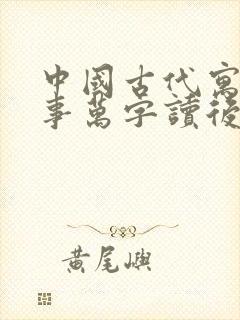 中國古代寓
事萬字讀後
黃尾嶼